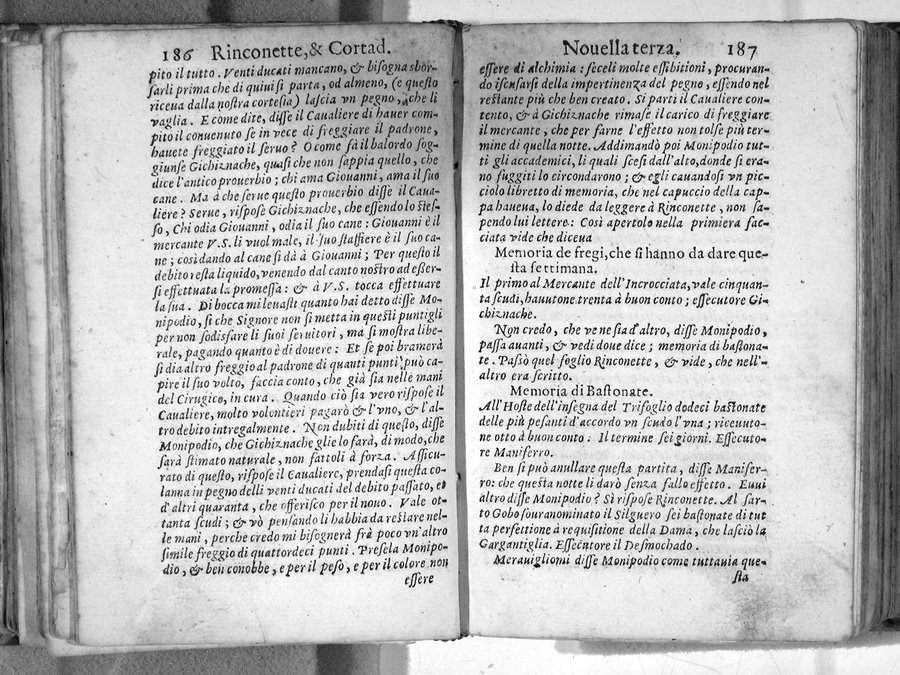 186 Rinconette, & Cortad.
pito il tutto. Venti ducati mancano, & bisogna sbor-
sarli prima che di quiui si parta, od almeno, (e questo
riceua dalla nostra cortesia) lascia vn pegno, che li
vaglia. E come dite, disse il Caualiere di hauer com-
pito il conuenuto se in vece di freggiare il padrone,
hauete freggiato il seruo? O come fà il balordo sog-
giunse Gichiznache, quasi che non sappia quello, che
dice l'antico prouerbio; chi ama Giouanni, ama il suo
cane. Ma à che serue questo prouerbio disse il Caua-
liere? Serue, rispose Gichiznache, che essendo lo stes-
so, Chi odia Giouanni, odia il suo cane: Giouanni è il
mercante V.S. li vuol male, il suo staffiere è il suo ca-
ne; così dando al cane si dà à Giouanni; Per questo il
debito resta liquido, venendo dal canto nostro ad esser-
si effettuata la promessa: & à V.S. tocca effettuare
la sua. Di bocca mi leuaste quanto hai detto disse Mo-
nipodio, sì che Signore non si metta in questi puntigli
per non sodisfare li suoi seruitori, ma si mostra libe-
rale, pagando quanto è di douere: Et se poi bramerà
si dia altro freggio al padrone di quanti punti può ca-
pire il suo volto, faccia conto, che già sia nelle mani
del Cirugico, in cura. Quando ciò sia vero rispose il
Caualiere, molto volontieri pagarò & l'vno, & l'al-
tro debito intregalmente. Non dubiti di questo, disse
Monipodio, che Gichiznache glie lo farà, di modo, che
sarà stimato naturale, non fattoli à forza. Assicu-
rato di questo, rispose il Caualiere, prendasi questa co-
lanna in pegno delli venti ducati del debito passato, et
d'altri quaranta, che offerisco per il nouo. Vale ot-
tanta scudi; & vò pensando li habbia da restare nel-
le mani, perche credo mi bisognerà frà poco vn'altro
simile freggio di quattordeci punti. Presela Monipo-
dio, & ben conobbe, e per il peso, e per il colore non
essere
Nouella terza. 187
essere di alchimia: feceli molte essibitioni, procuran-
do iscusarsi della impertinenza del pegno, essendo nel
restante più che ben creato. Si partì il Caualiere con-
tento, & à Gichiznache rimase il carico di freggiare
il mercante, che per farne l'effetto non tolse più ter-
mine di quella notte. Addimandò poi Monipodio tut-
ti gli accademici, li quali scesi dall'alto, donde si era-
no fuggiti lo circondarono; & egli cauandosi vn pic-
ciolo libretto di memoria, che nel capuccio della cap-
pa haueua, lo diede da leggere à Rinconette, non sa-
pendo lui lettere: Così apertolo nella primiera fac-
ciata vide che diceua
Memoria de fregi, che si hanno da dare que-
sta settimana.
Il primo al Mercante dell'Incrocciata, vale cinquan-
ta scudi, hauutone trenta à buon conto; essecutore Gi-
chiznache.
Non credo, che ve ne sia d'altro, disse Monipodio,
passa auanti, & vedi doue dice; memoria di bastona-
te. Passò quel foglio Rinconette, & vide, che nell'-
altro era scritto.
Memoria di Bastonate.
All'Hoste dell'insegna del Trifoglio dodeci bastonate
delle più pesanti d'accordo vn scudo l'vna; riceuuto-
ne otto à buon conto: Il termine sei giorni. Essecuto-
re Maniferro.
Ben si può anullare questa partita, disse Manifer-
ro: che questa notte li darò senza fallo effetto. Euui
altro disse Monipodio? Sì rispose Rinconette. Al sar-
to Gobo souranominato il Silguero sei bastonate di tut
ta perfettione à requisitione della Dama, che lasciò la
Gargantiglia. Essecutore il Desmochado.
Merauigliomi disse Monipodio come tuttauia que-
sta